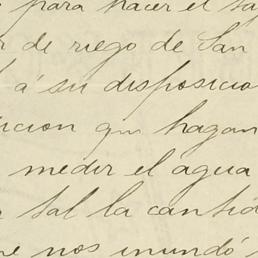 para hacer el
de riego de San
á su disposicio
cion que hagan
medir el agua
tal la cantid
nos inundó